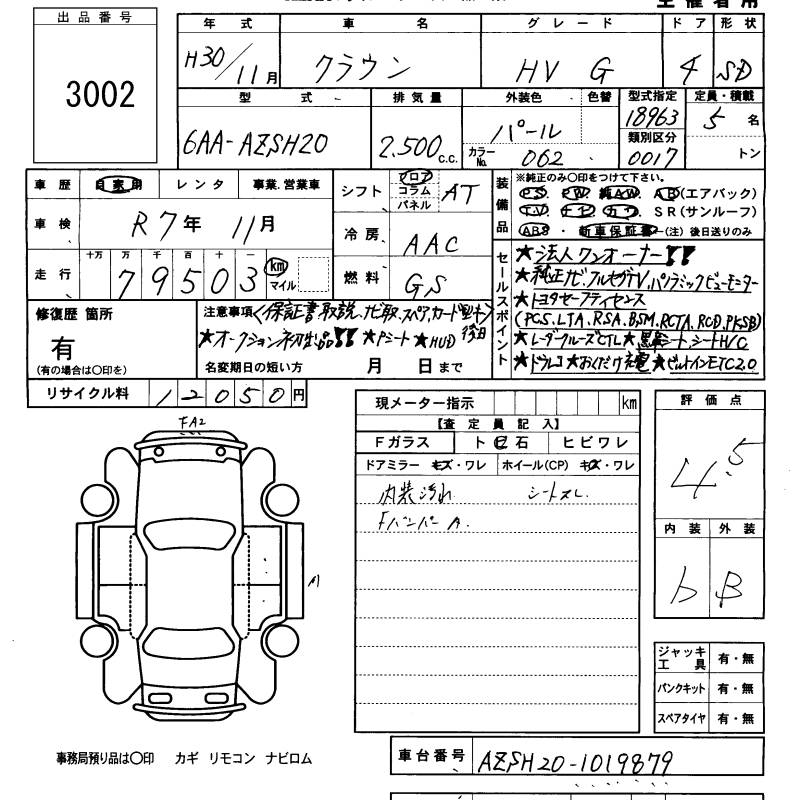 出品番号
3002
年式 車名 グレード ドア 形状
H30/11月 クラウン HV G 4 SD
型式 排気量 外装色 色替 型式指定 定員・積載
6AA-AZSH20 2,500c.c. パール 18963 5名
カラーNo. 062 類別区分 0017 トン
車歴 自家用 レンタ 事業.営業車
車検 R7年 11月
走行 十万 万 千 百 十 一
79503 km マイル
シフト フロア コラム パネル AT
冷房 AAC
燃料 GS
装備品
※純正のみ〇印をつけて下さい。
PS. PW. 純AW. AB(エアバック)
TV. ナビ. カワ. SR(サンルーフ)
ABS. 新車保証書―(注)後日送りのみ
セールスポイント
★法人ワンオーナー!!
★純正ナビ.フルセグTV.パノラミックビューモニター
★トヨタセーフティセンス
(PCS.LTA.RSA.BSM.RCTA.RCD.PKSB)
★レーダークルーズCTL★黒革シート.シートH/C
★ドラレコ★おくだけ充電★ビルトインETC2.0
修復歴 箇所
有
(有の場合は〇印を)
注意事項 保証書.取説.ナビ取.スペア.カードキー 後日
★オークション初出品!!★Pシート★HUD
名変期日の短い方 月 日まで
リサイクル料 12050円
FA2
A1
現メーター指示 km
【査定員記入】
Fガラス ト石 ヒビワレ
ドアミラー キズ・ワレ ホイール(CP) キズ・ワレ
内装汚れ シートスレ
Fバンパー A.
評価点
4.5
内装 外装
b B
ジャッキ工具 有・無
パンクキット 有・無
スペアタイヤ 有・無
事務局預り品は〇印 カギ リモコン ナビロム
車台番号 AZSH20-1019879